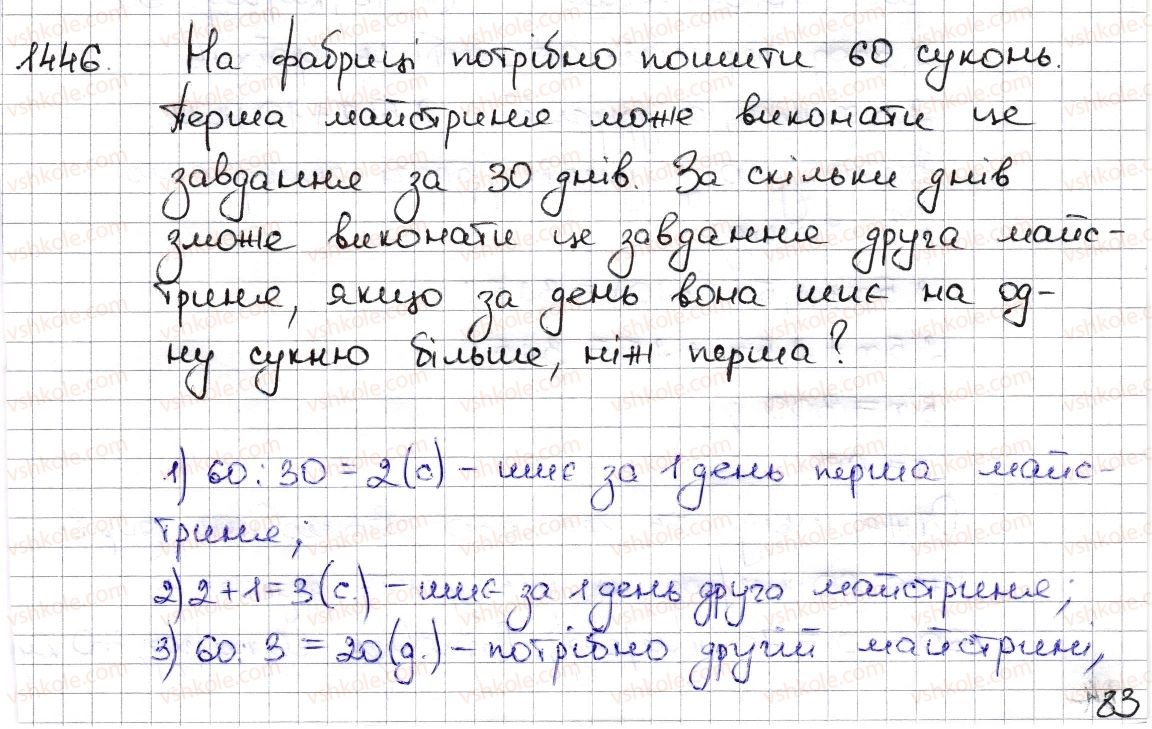 1446. На фабриці потрібно пошити 60 суконь.
Перша майстриня може виконати це
завдання за 30 днів. За скільки днів
зможе виконати це завдання друга майс-
триня, якщо за день вона шиє на од-
ну сукню більше, ніж перша?
1) 60 : 30 = 2 (с) – шиє за 1 день перша майс-
триня;
2) 2 + 1 = 3 (с.) – шиє за 1 день друга майстриня;
3) 60 : 3 = 20 (д.) – потрібно другій майстрині,
83